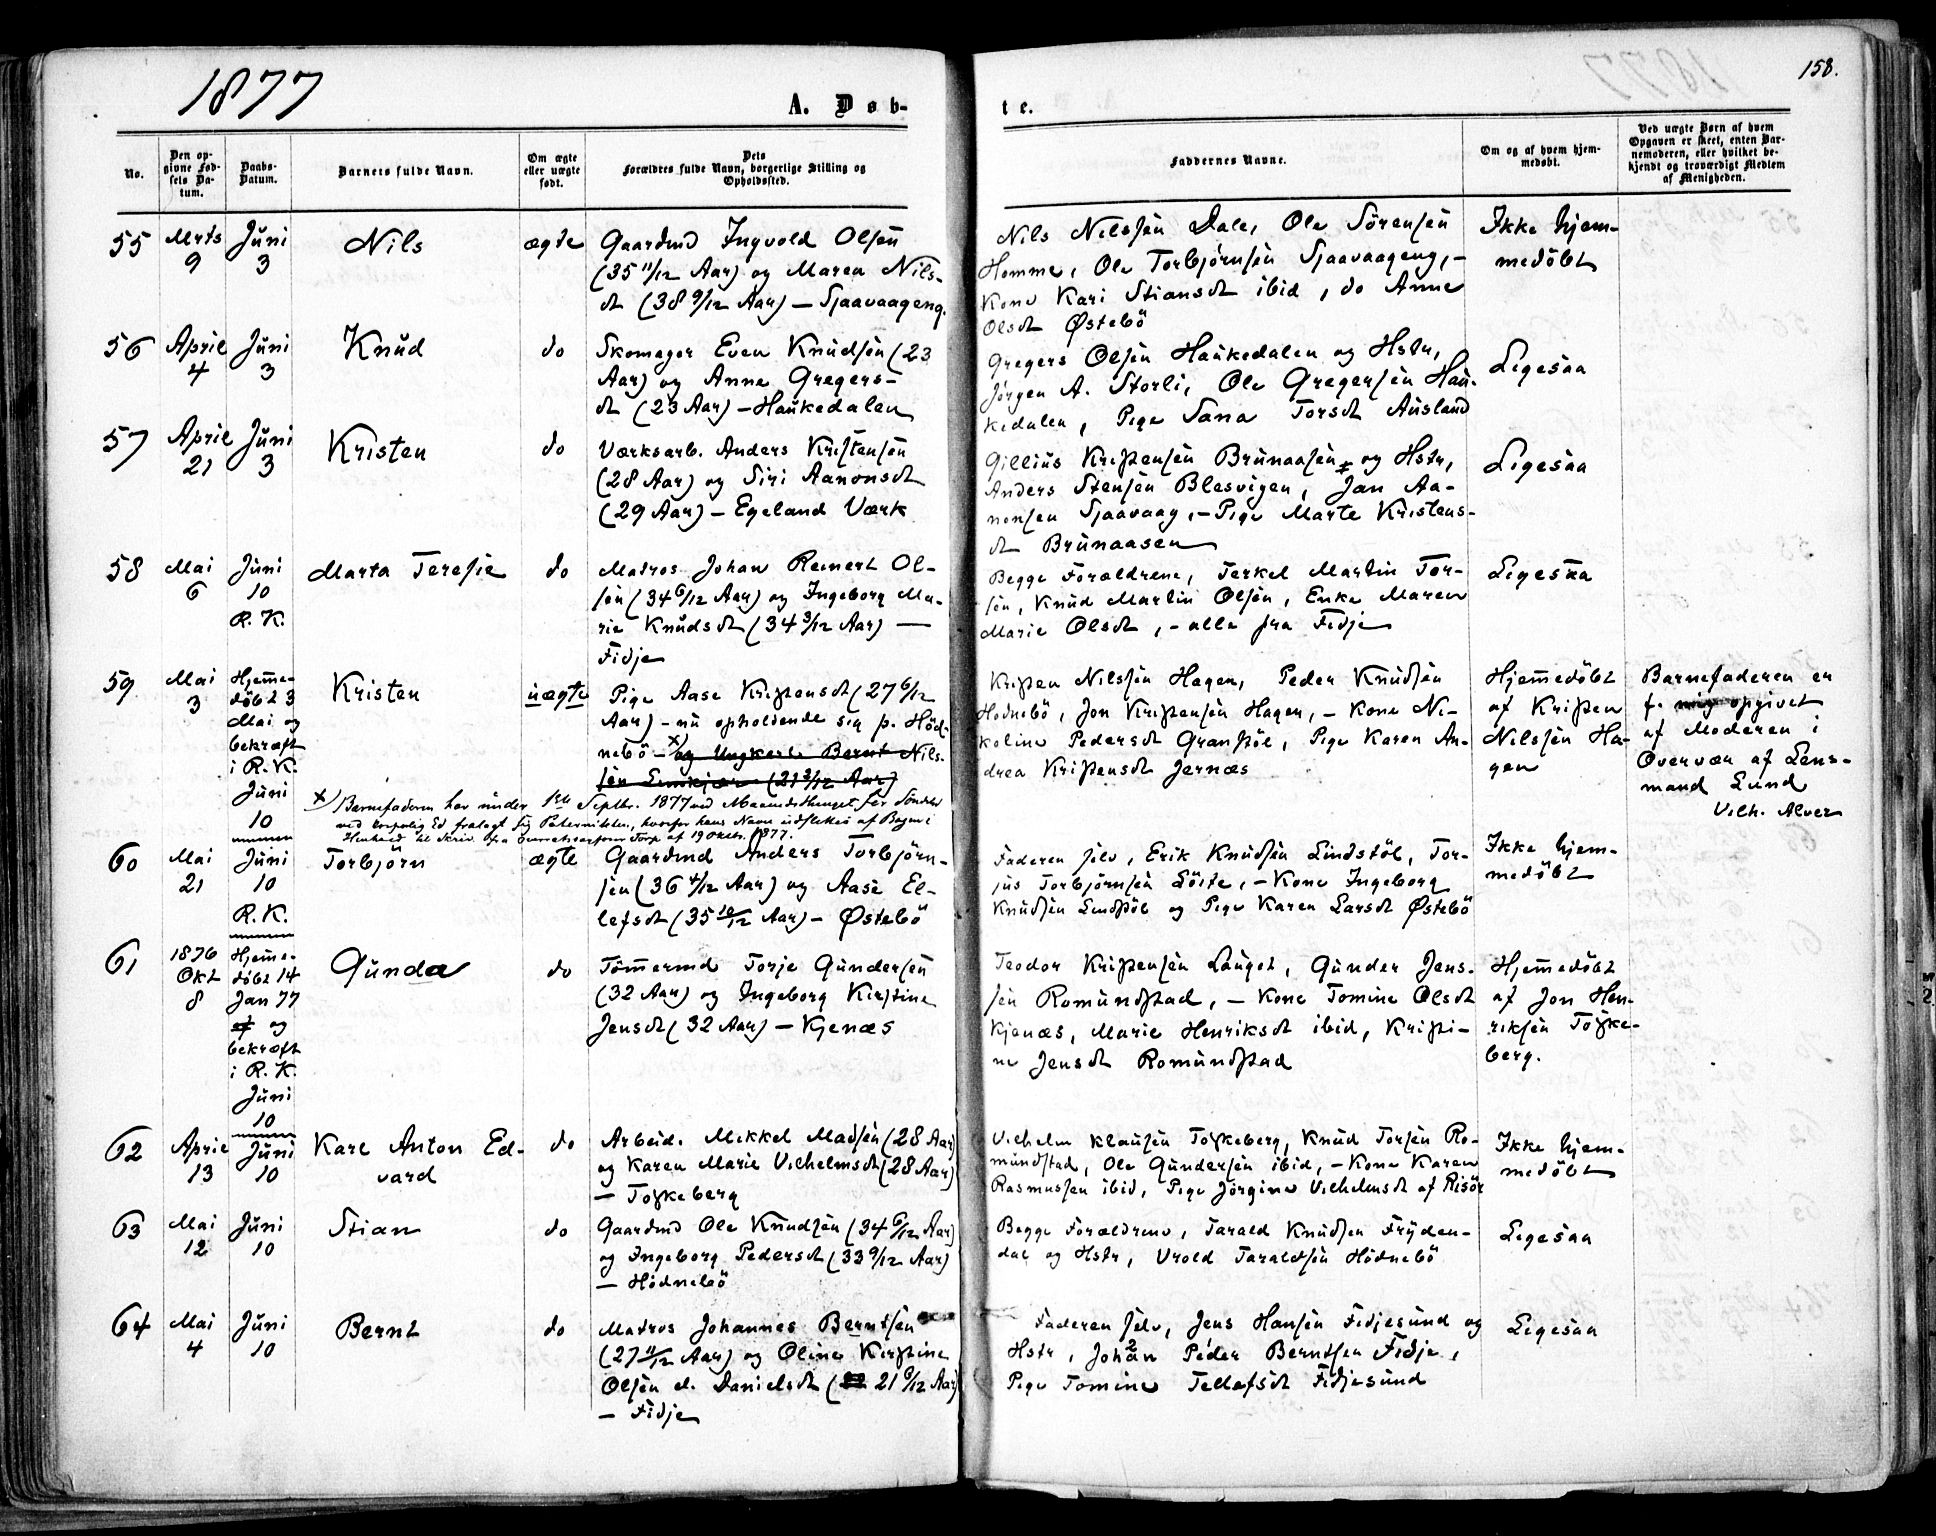 1877
A. Døb-
te.
158.
No.
Den op-
givne Fød-
sels Da-
tum.
Daabs-
Datum.
Barnets fulde Navn.
Om ægte
eller uægte
født.
Dets
Forældres fulde Navn, borgerlige Stilling og
Opholdssted.
Faddernes Navne.
Om og af hvem hjem-
medøbt.
Ved uægte Børn af hvem
Opgaven er skeet, enten Bar-
nemoderen, eller hvilket be-
kjendt og troværdigt Medlem
af Menigheden.
55
Mrts
9
Juni
3
Nils
ægte
Gaardmd Ingvold Olsen
(35 11/12 Aar) og Maren Nils-
dt (38 9/12 Aar) — Sjaavaageng.
Nils Nilssen Dale, Ole Sörensen
Homme, Ole Torbjörnsen Sjaavaageng, –
Kone Kari Stiansdt ibid, do Anne
Olsdt Østebö
Ikke hjem-
medöbt
56
April
4
Juni
3
Knud
do
Skomager Even Knudsen (23
Aar) og Anne Gregers-
dt (23 Aar) — Haukedalen
Gregers Olsen Haukedalen og Hstr,
Jörgen A. Storli, Ole Gregersen Hau-
kedalen, Pige Sana Torsdt Ausland
Ligesaa
57
April
21
Juni
3
Kristen
do
Værksarb. Anders Kristensen
(28 Aar) og Siri Aanonsdt
(29 Aar) — Egeland Værk
Gillius Kristensen Brunaasen og Hstr,
Anders Stensen Blesvigen, Jan Aa-
nonsen Sjaavaag, – Pige Marte Kristens-
dt Brunaasen
Ligesaa
58
Mai
6
Juni
10
R. K.
Marta Teresie
do
Matros Johan Reinert Ol-
sen (34 6/12 Aar) og Ingeborg Ma-
rie Knudsdt (34 3/12 Aar) —
Fidje
Begge Forældrene, Terkel Martin Tor-
sen, Knud Martin Olsen, Enke Maren
Marie Olsdt, – alle fra Fidje
Ligesaa
59
Mai
3
Hjemme-
döbt 3
Mai og
bekræft
i R. K.
Juni
10
Kristen
uægte
Pige Aase Kristensdt (27 6/12
Aar) – nu opholdende sig p. Höd-
nebö – x) og Ungkarl Bernt Nils-
sen (21 3/12 Aar)
x) Barnefaderen har under 1ste Septbr. 1877 ved Maanedsthinget for Söndel
ved korporlig Ed fralagt sig Paterniteten, hvorfor hans Navn udslettes af Bogen i
Henhold til Skriv. fra Torp af 19 Oktbr. 1877.
Kristen Nilssen Hagen, Peder Knudsen
Hödnebö, Jon Kristensen Hagen, – Kone Ni-
koline Pedersdt Granstöl, Pige Karen An-
drea Kristensdt Jernæs
Hjemmedöbt
af Kristen
Nilssen Ha-
gen
Barnefaderen er
f. mig opgivet
af Moderen i
Overvær af Lens-
mand Lund
Vilh. Alver
60
Mai
21
Juni
10
R. K.
Torbjörn
ægte
Gaardmd Anders Torbjörn-
sen (36 4/12 Aar) og Aase El-
lefsdt (35 10/12 Aar) – Østebö
Faderen selv, Erik Knudsen Lindstöl, Tor-
jus Torbjörnsen Löite, – Kone Ingeborg
Knudsen Lindstöl og Pige Karen Larsdt Østebö
Ikke hjem-
medöbt
61
1876
Okt
8
Hjemme-
döbt 14
Jan 77
og
bekræft
i R. K.
Juni
10
Gunda
do
Tömmermd Torje Gundersen
(32 Aar) og Ingeborg Kirstine
Jensdt (32 Aar) – Kjenæs
Teodor Kristensen Lauget, Gunder Jens-
sen Romundstad, – Kone Tomine Olsdt
Kjenæs, Marie Henriksdt ibid, Kristi-
ne Jensdt Romundstad
Hjemmedöbt
af Jon Hen-
riksen Toskе-
berg.
62
April
13
Juni
10
Karl Anton Ed-
vard
do
Arbeid. Mikkel Madsen (28 Aar)
og Karen Marie Vilhelmsdt (28 Aar)
— Toskeberg
Vilhelm Klausen Toskeberg, Knud Torsen Ro-
mundstad, Ole Gundersen ibid, – Kone Karen
Rasmussen ibid, Pige Jörgine Vilhelmsdt af Risör
Ikke hjem-
medöbt
63
Mai
12
Juni
10
Stian
do
Gaardmd Ole Knudsen (34 6/12 Aar)
og Ingeborg Pedersdt (33 9/12 Aar)
— Hödnebö
Begge Forældrene, Tarald Knudsen Fryden-
dal og Hstr, Vrold Taraldsen Hödnebö
Ligesaa
64
Mai
4
Juni
10
Bernt
do
Matros Johannes Berntsen
(27 11/12 Aar) og Oline Kirstine
Olsen el. Danielsdt (21 6/12 Aar)
— Fidje
Faderen selv, Jens Hansen Fidjesund og
Hstr, Johan Peder Berntsen Fidje,
Pige Tomine Tellefsdt Fidjesund
Ligesaa